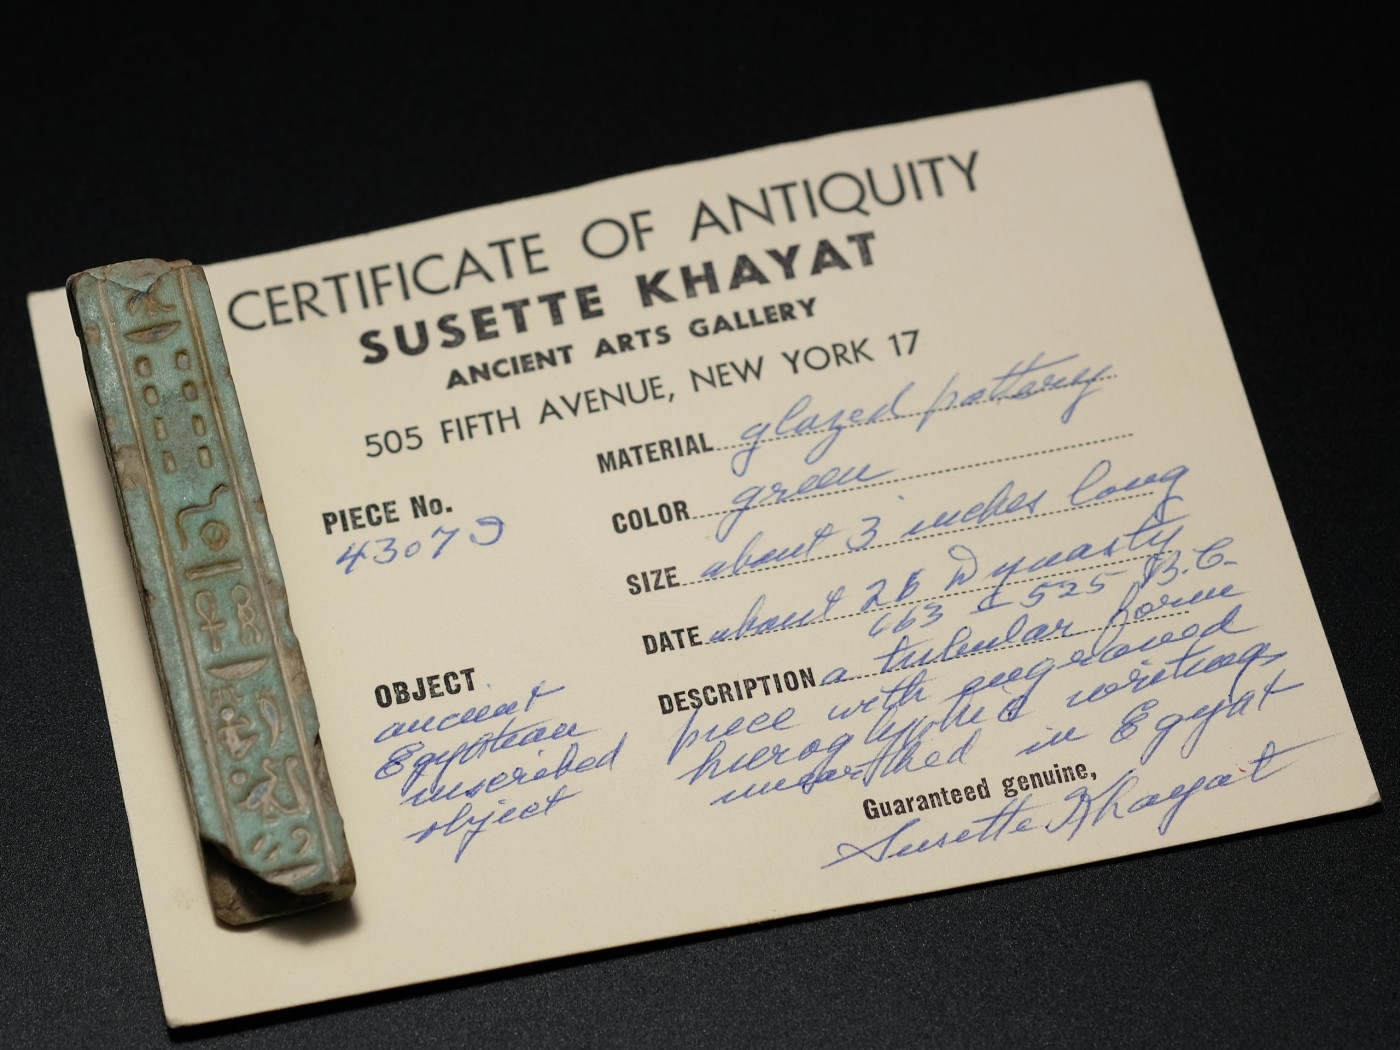 CERTIFICATE OF ANTIQUITY
SUSETTE KHAYAT
ANCIENT ARTS GALLERY
505 FIFTH AVENUE, NEW YORK 17
PIECE No.
43079
OBJECT
ancient
Egyptian
inscribed
object
MATERIAL glazed pottery
COLOR green
SIZE about 3 inches long
DATE about 26 Dynasty
663 525 B.C.
DESCRIPTION a tubular form
piece with engraved
hieroglyphic writings
unearthed in Egypt
Guaranteed genuine,
Susette Khayat